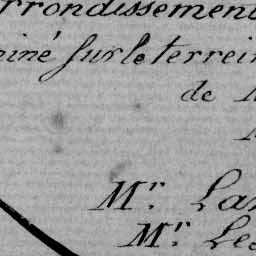 rrondissement
iné sur le terrein
de
Mr. La
Mr. Le